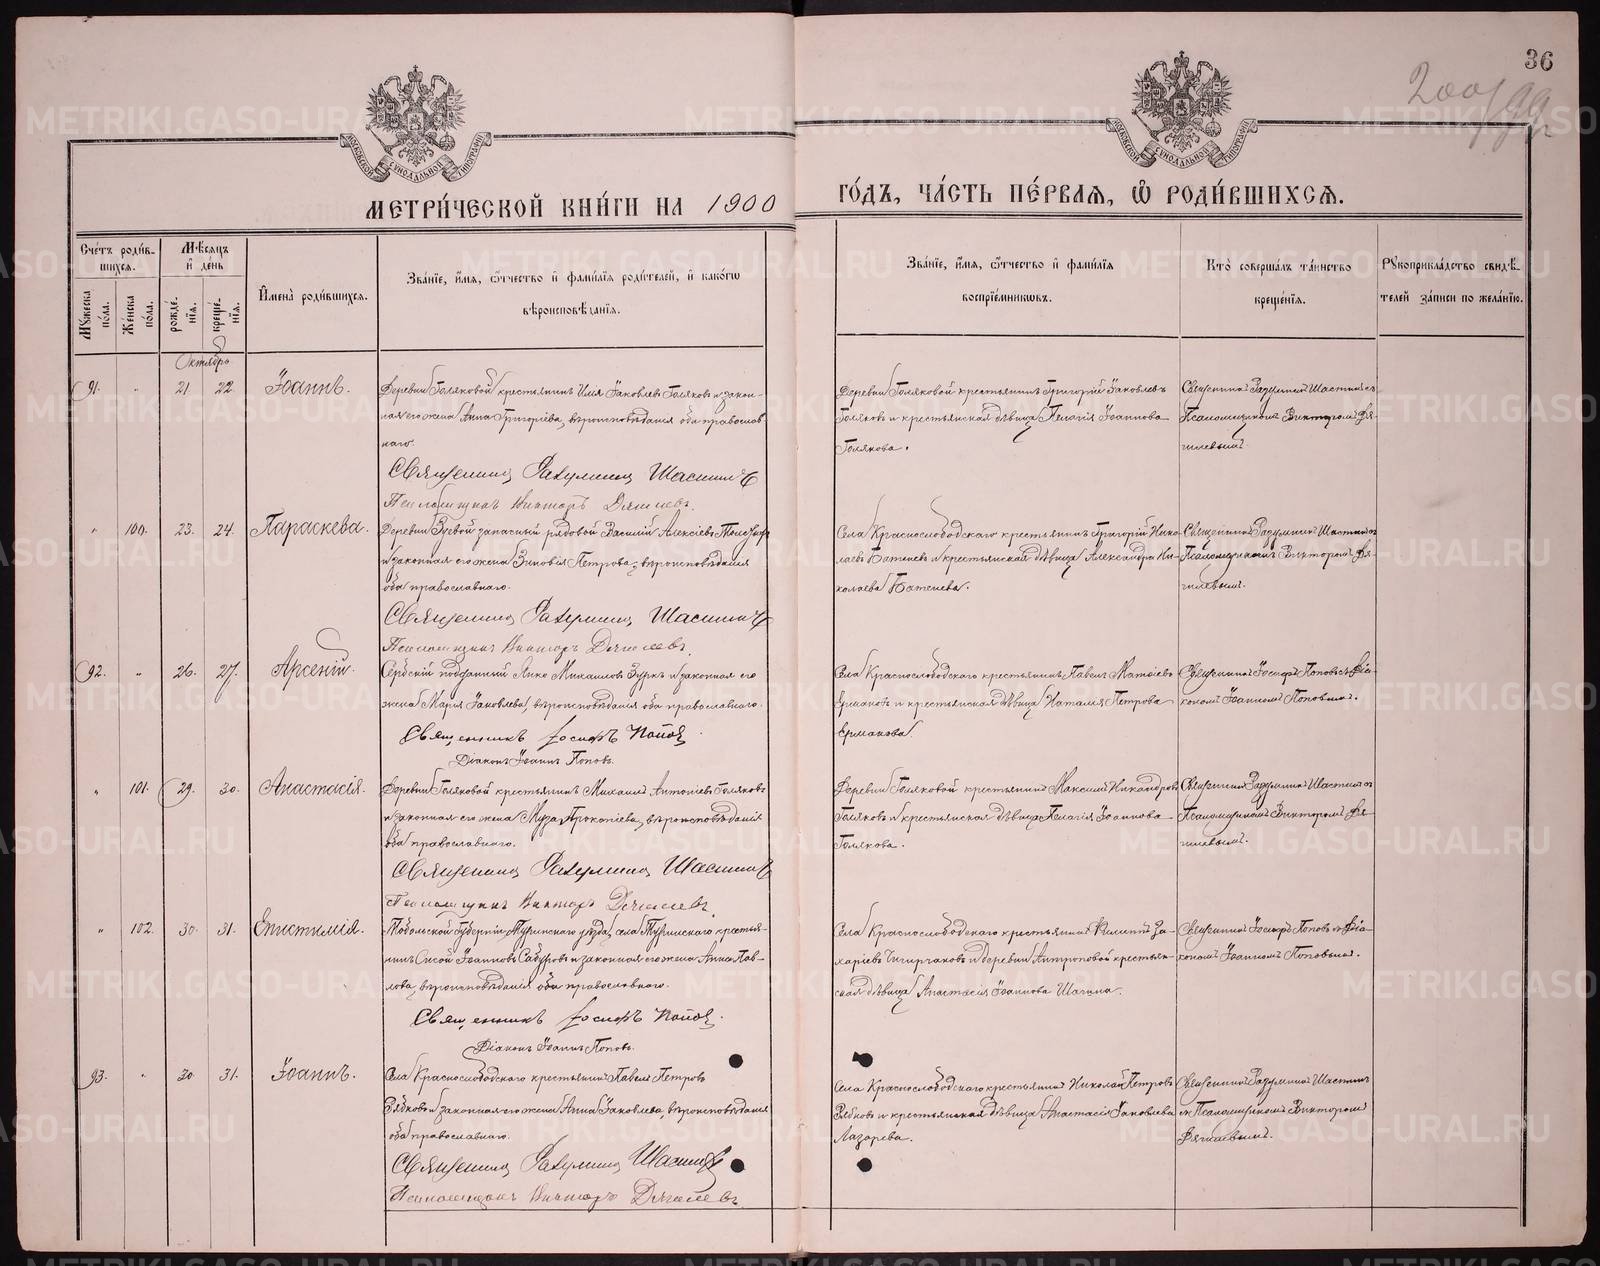 36
200/99
МОСКОВСКОЙ СѴНОДАЛЬНОЙ ТИПОГРАФІИ
МОСКОВСКОЙ СѴНОДАЛЬНОЙ ТИПОГРАФІИ
МЕТРИ́ЧЕСКОЙ КНИ́ГИ НА 1900
ГО́ДЪ, ЧА́СТЬ ПЕ́РВАЯ, Ѽ РОДИ́ВШИХСЯ.
Сче́тъ роди́в-
шихся.
Мѣ́сяцъ
и҆ де́нь
Мꙋ́жеска по́ла.
Же́нска по́ла.
рожде́-нїѧ.
креще́-нїѧ.
И҆мена̀ роди́вшихся.
Зва́нїе, и҆́мѧ, ѻ҆́тчество и҆ фами́лїѧ роди́телей, и҆ како́гѡ
вѣроисповѣ́данїѧ.
Зва́нїе, и҆́мѧ, ѻ҆́тчество и҆ фами́лїѧ
воспрїе́мникѡвъ.
Кто̀ соверша́лъ та́инство
креще́нїѧ.
Рꙋкоприкла́дство свидѣ́-
телей за́писи по жела́нїю.
Октябрь
91. " 21. 22. Іоаннъ.
Деревни Голяковой крестьянинъ Илія Іаковлевъ Голяковъ и закон-
ная его жена Анна Григоріева, вѣроисповѣданія оба православ-
наго.
Священникъ
Псаломщикъ Викторъ
Деревни Голяковой крестьянинъ Григорій Іаковлевъ
Голяковъ и крестьянская дѣвица Пелагія Іоаннова
Голякова.
Священникъ
Псаломщикомъ Викторомъ
" 100. 23. 24. Параскева.
Деревни Зуевой запасный рядовой Василій Алексіевъ
и законная его жена Зиновія Петрова, вѣроисповѣданія
оба православнаго.
Священникъ
Псаломщикъ Викторъ
Села Краснослободскаго крестьянинъ Григорій Нико-
лаевъ Батеневъ и крестьянская дѣвица Александра Ни-
колаева Батенева.
Священникъ
Псаломщикомъ Викторомъ
92. " 26. 27. Арсеній.
Сербскій подданный Михаиловъ и законная его
жена Марія Іаковлева, вѣроисповѣданія оба православнаго.
Священникъ Іосифъ Поповъ.
Діаконъ Іоаннъ Поповъ.
Села Краснослободскаго крестьянинъ Павелъ Матѳіевъ
Ермаковъ и крестьянская дѣвица Наталія Петрова
Ермакова.
Священникъ Іосифъ Поповъ съ Діа-
кономъ Іоанномъ Поповымъ.
" 101. 29. 30. Анастасія.
Деревни Голяковой крестьянинъ Михаилъ Антоніевъ Голяковъ
и законная его жена Муза Прокопіева, вѣроисповѣданія
оба православнаго.
Священникъ
Псаломщикъ Викторъ
Деревни Голяковой крестьянинъ Максимъ Никандровъ
Голяковъ и крестьянская дѣвица Пелагія Іоаннова
Голякова.
Священникъ
Псаломщикомъ Викторомъ
" 102. 30. 31. Епистимія.
Тобольской губерніи, Туринскаго уѣзда, села Туринскаго крестья-
нинъ Сисой Іоанновъ Сабуровъ и законная его жена Анна Пав-
лова, вѣроисповѣданія оба православнаго.
Священникъ Іосифъ Поповъ.
Діаконъ Іоаннъ Поповъ.
Села Краснослободскаго крестьянинъ Филиппъ За-
харіевъ и деревни Антроповой крестьян-
ская дѣвица Анастасія Іоаннова
Священникъ Іосифъ Поповъ съ Діа-
кономъ Іоанномъ Поповымъ.
93. " 30. 31. Іоаннъ.
Села Краснослободскаго крестьянинъ Павелъ Петровъ
Рябковъ и законная его жена Анна Іаковлева, вѣроисповѣданія
оба православнаго.
Священникъ
Псаломщикъ Викторъ
Села Краснослободскаго крестьянинъ Николай Петровъ
Рябковъ и крестьянская дѣвица Анастасія Іаковлева
Лазарева.
Священникъ
съ Псаломщикомъ Викторомъ
METRIKI.GASO-URAL.RU